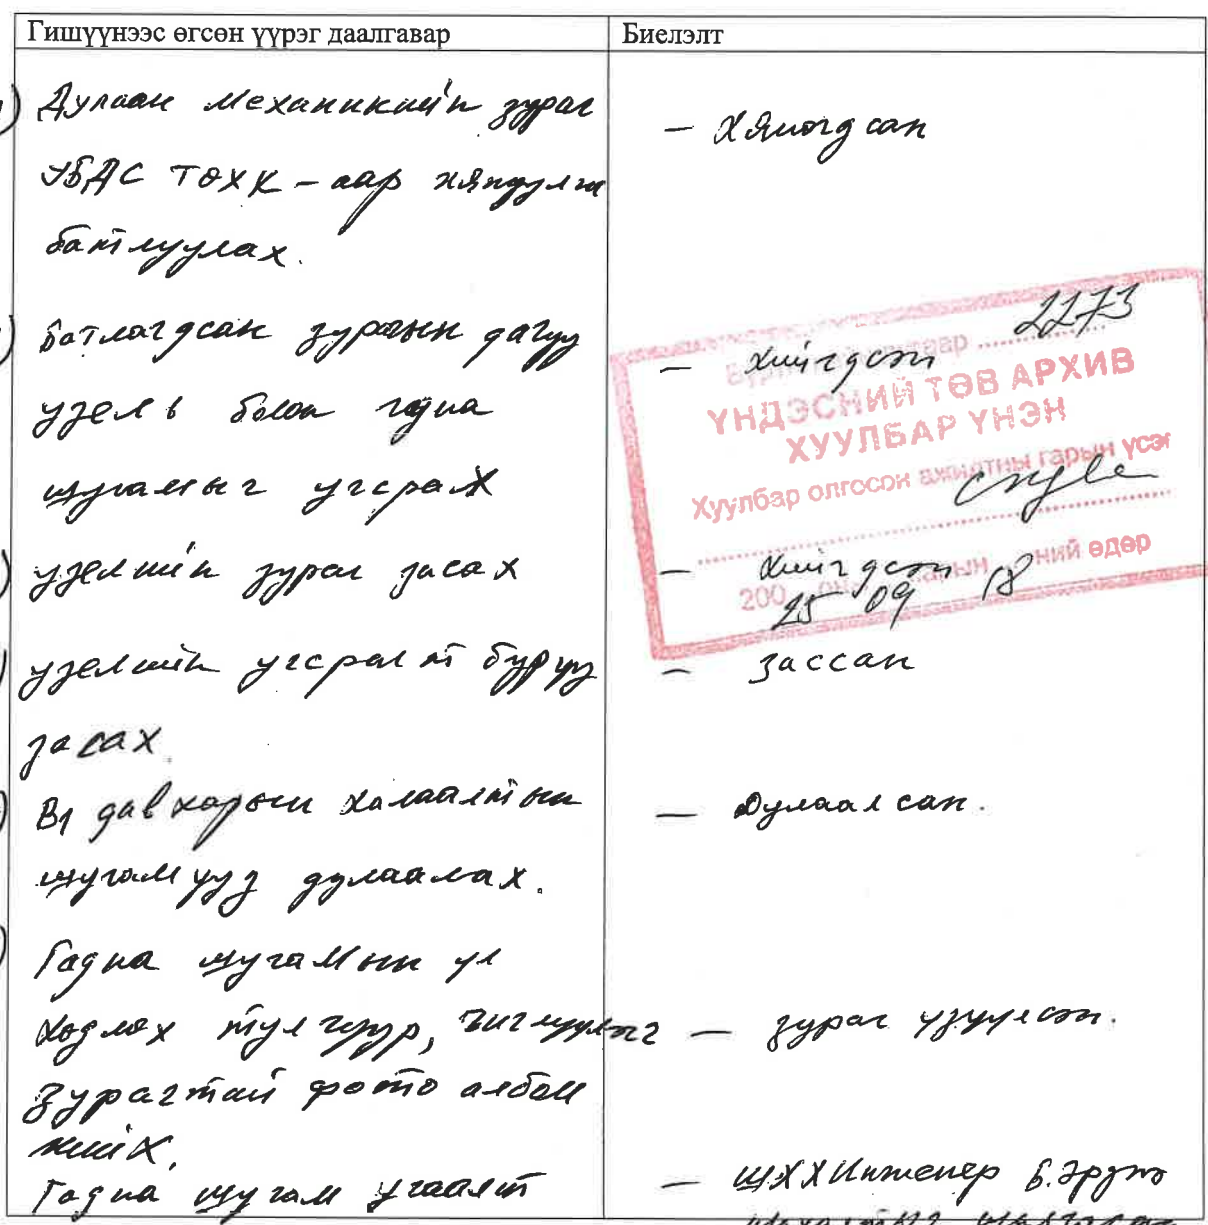 Гишүүнээс өгсөн үүрэг даалгавар
Биелэлт
Дулаан механикийн зураг
УБДС ТӨХК-аар хянуулж
батлуулах.
- Хянагдсан
Батлагдсан зургийн дагуу
узель болон гадна
шугамыг угсрах
- Хийгдсэн
узелийн зураг засах
- Хийгдсэн
узелийн угсралт буруу
засах.
- Зассан
В1 давхарын халаалтын
шугамууд дулаалах.
- Дулаалсан.
Гадна шугамын үл
хөдлөх тулгуур,
зурагтай фото албом
хийх.
- зураг үзүүлсэн.
Гадна шугам угаалт
- ШХХ Инженер Б.Эрдэнэ
2273
ҮНДЭСНИЙ ТӨВ АРХИВ
ХУУЛБАР ҮНЭН
Хуулбар олгосон ажилтны гарын үсэг
200 оны сарын ний өдөр
25 09 18